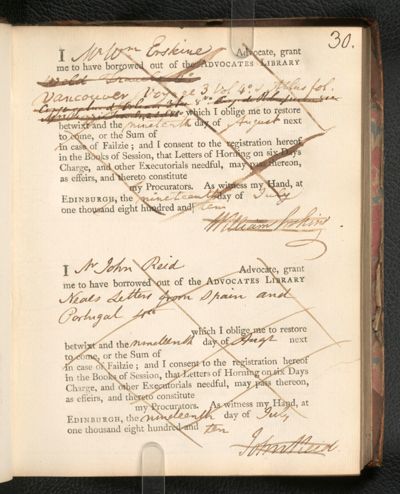 30.
I Mr Wm Erskine Advocate, grant
me to have borrowed out of the ADVOCATES LIBRARY
Weld
Vancouver Voyage 3 Vol 4o & Atlas fol.
which I oblige me to restore
betwixt and the nineteenth day of August next
to come, or the Sum of
in case of Failzie; and I consent to the registration hereof
in the Books of Session, that Letters of Horning on six Days
Charge, and other Executorials needful, may pass thereon,
as effeirs, and thereto constitute
my Procurators. As witness my Hand, at
EDINBURGH, the nineteenth day of July
one thousand eight hundred and ten
William Erskine
I Mr John Reid Advocate, grant
me to have borrowed out of the ADVOCATES LIBRARY
Neales Letters from Spain and
Portugal
which I oblige me to restore
betwixt and the nineteenth day of Augt next
to come, or the Sum of
in case of Failzie; and I consent to the registration hereof
in the Books of Session, that Letters of Horning on six Days
Charge, and other Executorials needful, may pass thereon,
as effeirs, and thereto constitute
my Procurators. As witness my Hand, at
EDINBURGH, the nineteenth day of July
one thousand eight hundred and ten
John Reid